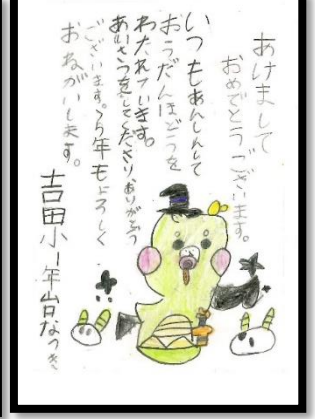 あけまして
おめでとうございます。
いつもあんしんして
おうだんほどうを
わたれています。
あいさつをしてくださり、ありがとう
ございます。ことし年もよろしく
おねがいします。
吉田小一年山日なつき